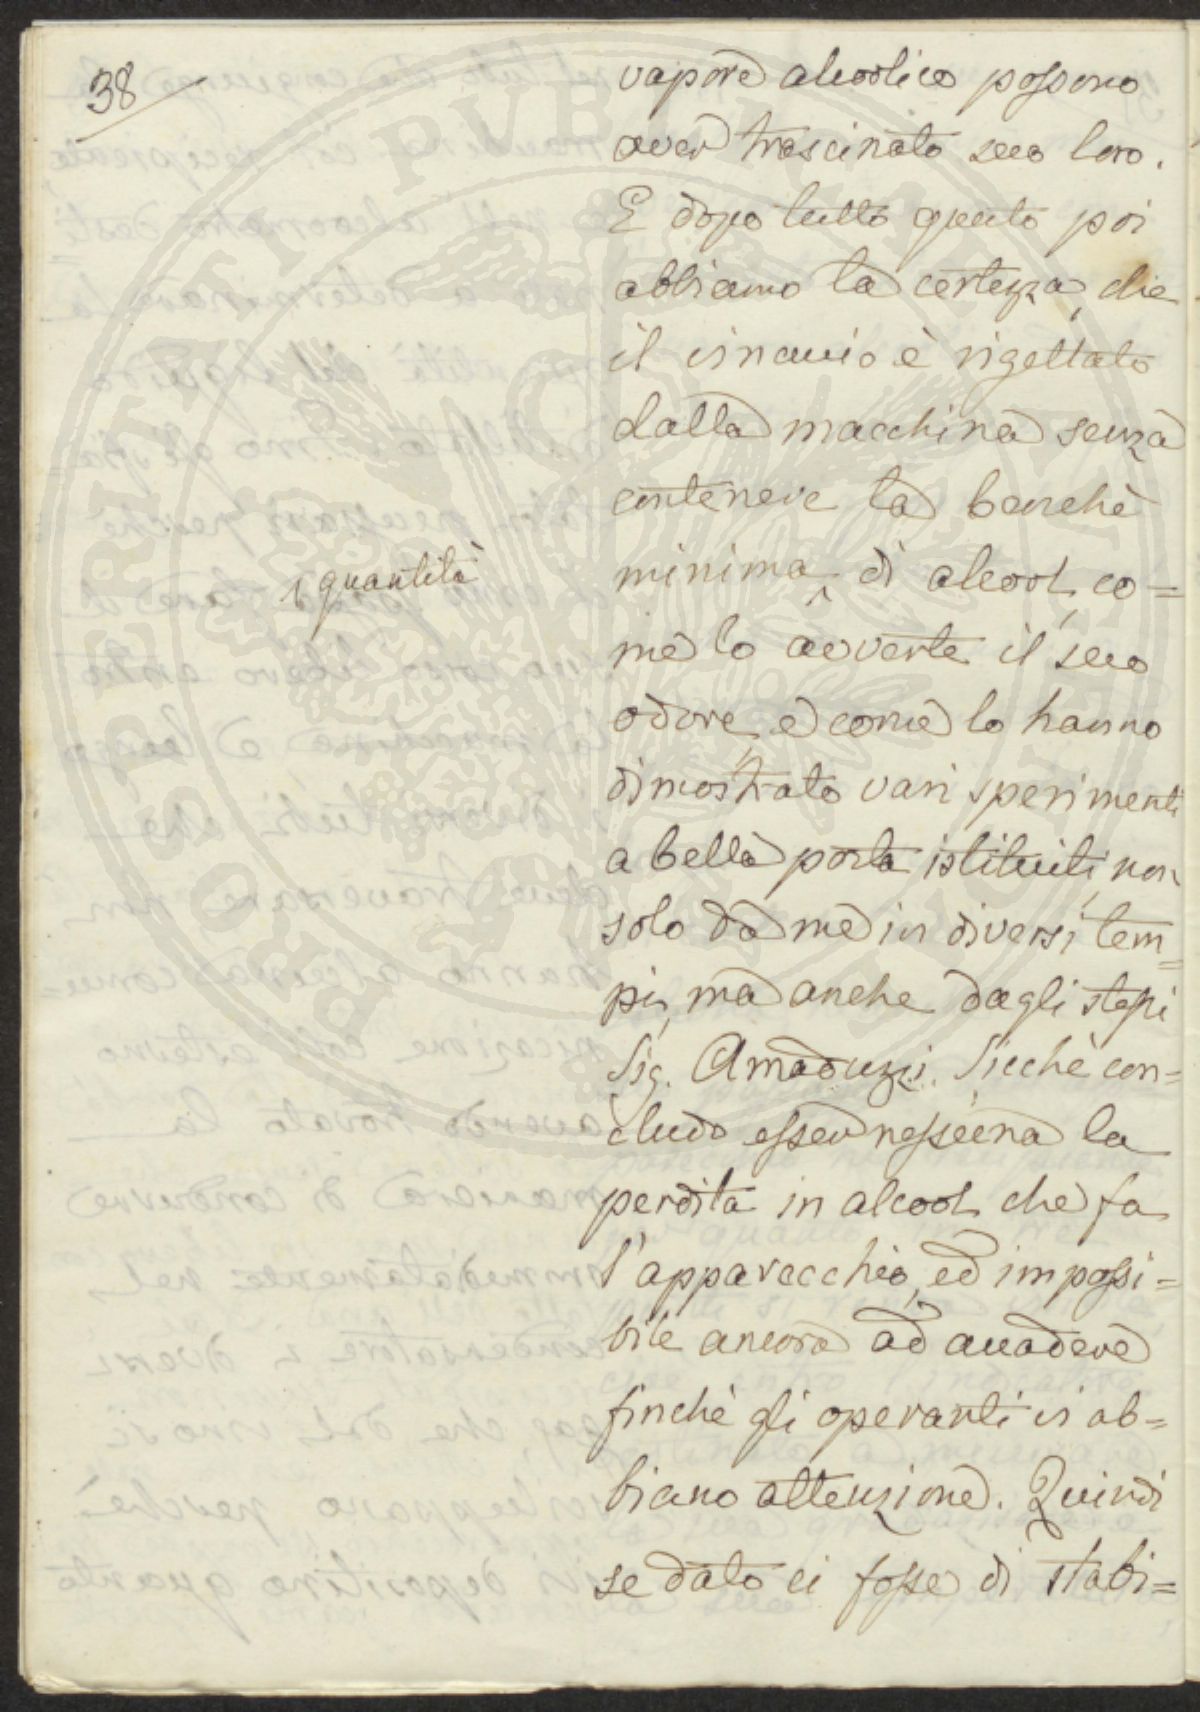 38
vapore alcoolico possono
aver trascinato seco loro.
E dopo tutto questo poi
abbiamo la certezza, che
il vinaccio è rigettato
dalla macchina senza
contenere la benchè
quantità
minima di alcool, co=
me lo avverte il suo
odore, e come lo hanno
dimostrato vari sperimenti
a bella posta istituiti, non
solo da me in diversi tem=
pi, ma anche dagli stessi
Sig. Amaduzzi. Sicchè con=
cludo esser nessuna la
perdita in alcool che fa
l'apparecchio, ed impossi=
bile ancora ad accadere
finchè gli operanti vi ab=
biano attenzione. Quindi
se dato ci fosse di stabi=